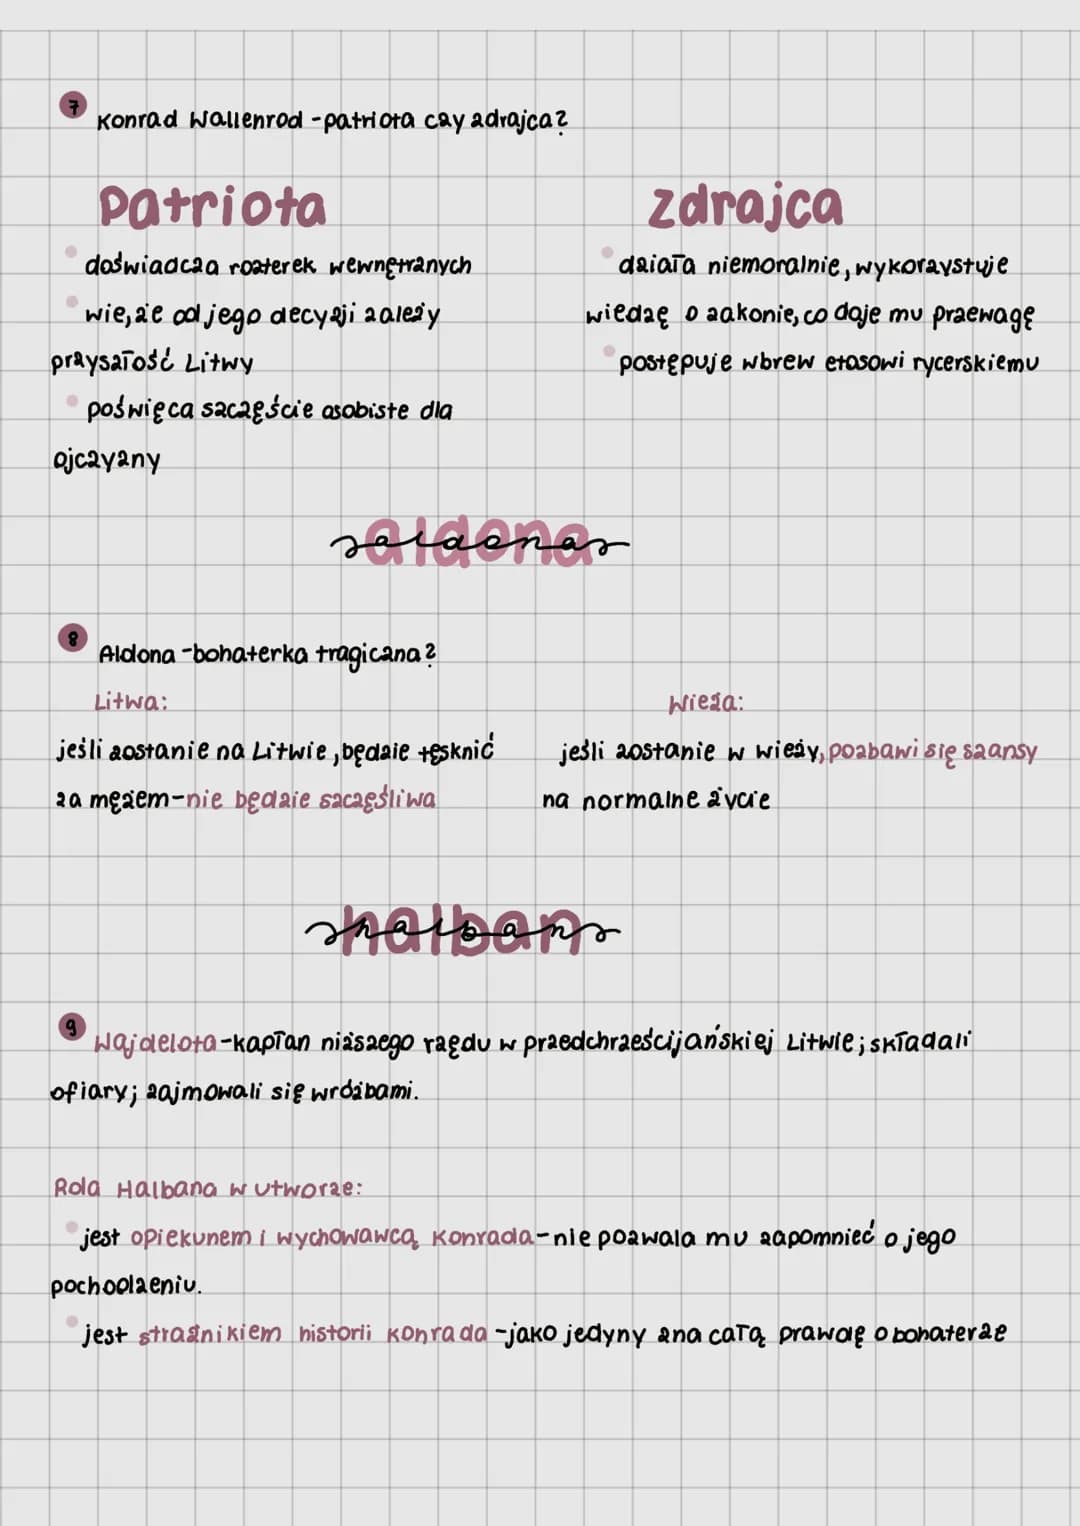 7
Konrad Wallenrod - patriota czy zdrajca?
Patriota
• doświadcza rozterek wewnętrznych
• wie, że od jego decyzji zależy
przyszłość Litwy
• poświęca szczęście osobiste dla
ojczyzny
zdrajca
• działa niemoralnie, wykorzystuje
wiedzę o zakonie, co daje mu przewagę
• postępuje wbrew etosowi rycerskiemu
aldona
8
Aldona - bohaterka tragiczna?
Litwa:
jeśli zostanie na Litwie, będzie tęsknić
za mężem - nie będzie szczęśliwa
Wieża:
jeśli zostanie w wieży, pozbawi się szansy
na normalne życie
halban
9
Wajdelota - kapłan niższego rzędu w przedchrześcijańskiej Litwie; składali
ofiary; zajmowali się wróżbami.
Rola Halbana w utworze:
• jest opiekunem i wychowawcą Konrada - nie pozwala mu zapomnieć o jego
pochodzeniu.
• jest strażnikiem historii Konrada - jako jedyny zna całą prawdę o bohaterze